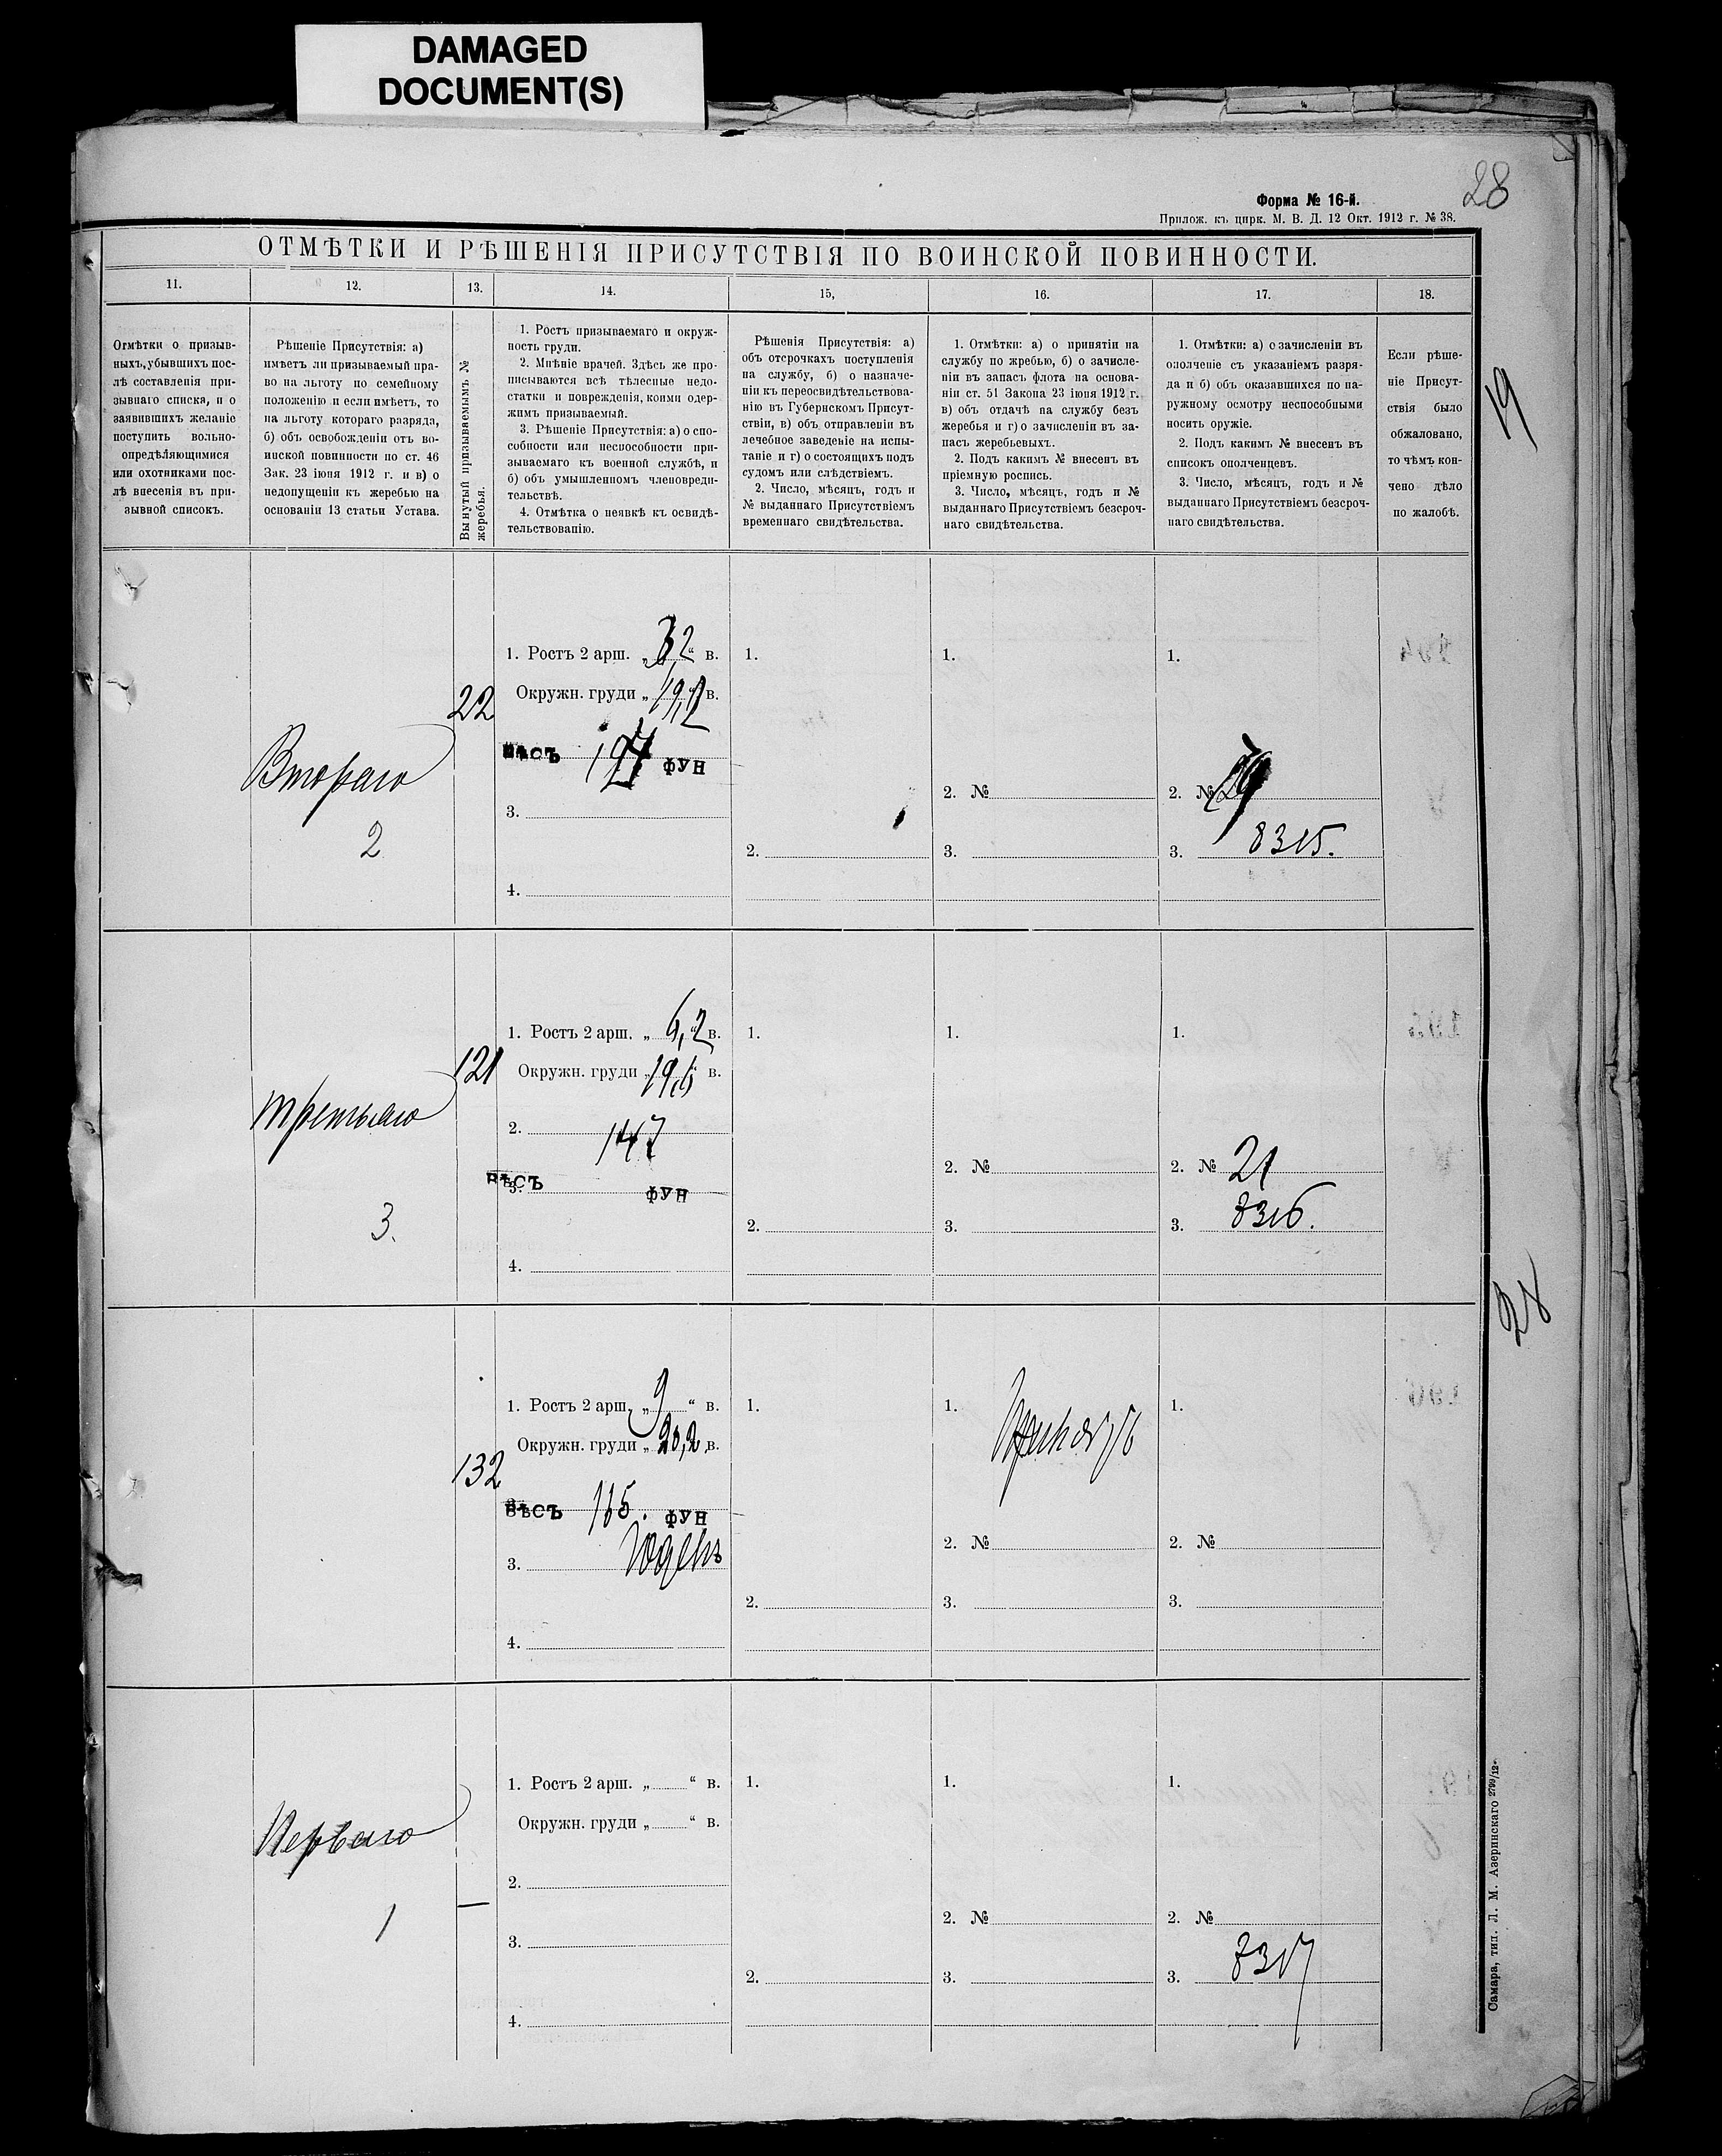 DAMAGED
DOCUMENT(S)
28
Форма № 16-й.
Прилож. къ цирк. М. В. Д. 12 Окт. 1912 г. № 38.
ОТМѢТКИ И РѢШЕНІЯ ПРИСУТСТВІЯ ПО ВОИНСКОЙ ПОВИННОСТИ.
11.
12.
13.
14.
15,
16.
17.
18.
Отмѣтки о призыв-
ныхъ, убывшихъ пос-
лѣ составленія при-
зывнаго списка, и о
заявившихъ желаніе
поступить вольно-
опредѣляющимися
или охотниками пос-
лѣ внесенія въ при-
зывной списокъ.
Рѣшеніе Присутствія: а)
имѣетъ ли призываемый пра-
во на льготу по семейному
положенію и если имѣетъ, то
на льготу котораго разряда,
б) объ освобожденіи отъ во-
инской повинности по ст. 46
Зак. 23 іюня 1912 г. и в) о
недопущеніи къ жеребью на
основаніи 13 статьи Устава.
Вынутый призываемымъ №
жеребья.
1. Ростъ призываемаго и окруж-
ность груди.
2. Мнѣніе врачей. Здѣсь же про-
писываются всѣ тѣлесные недо-
статки и поврежденія, коими одер-
жимъ призываемый.
3. Рѣшеніе Присутствія: а) о спо-
собности или неспособности при-
зываемаго къ военной службѣ, и
б) объ умышленномъ членовреди-
тельствѣ.
4. Отмѣтка о неявкѣ къ освидѣ-
тельствованію.
Рѣшенія Присутствія: а)
объ отсрочкахъ поступленія
на службу, б) о назначе-
ніи къ переосвидѣтельствова-
нію въ Губернскомъ Присут-
ствіи, в) объ отправленіи въ
лечебное заведеніе на испы-
таніе и г) о состоящихъ подъ
судомъ или слѣдствіемъ.
2. Число, мѣсяцъ, годъ и
№ выданнаго Присутствіемъ
временнаго свидѣтельства.
1. Отмѣтки: а) о принятіи на
службу по жребью, б) о зачисле-
ніи въ запасъ флота на основа-
ніи ст. 51 Закона 23 іюня 1912 г.
в) объ отдачѣ на службу безъ
жеребья и г) о зачисленіи въ за-
пасъ жеребьевыхъ.
2. Подъ какимъ № внесенъ въ
пріемную роспись.
3. Число, мѣсяцъ, годъ и №
выданнаго Присутствіемъ безсроч-
наго свидѣтельства.
1. Отмѣтки: а) о зачисленіи въ
ополченіе съ указаніемъ разря-
да и б) объ оказавшихся по на-
ружному осмотру неспособными
носить оружіе.
2. Подъ какимъ № внесенъ въ
списокъ ополченцевъ.
3. Число, мѣсяцъ, годъ и №
выданнаго Присутствіемъ безсроч-
наго свидѣтельства.
Если рѣше-
ніе Присут-
ствія было
обжаловано,
то чѣмъ кон-
чено дѣло
по жалобѣ.
19
Второго
2
22
1. Ростъ 2 арш. „ “ в.
Окружн. груди „ “ в.
ВѢСЪ ФУН
3.
4.
1.
2.
1.
2. №
3.
1.
2. №
3. 8315.
третьяго
3.
121
1. Ростъ 2 арш. „ 6,2 “ в.
Окружн. груди „ 19,6 “ в.
2. 147
ВѢСЪ ФУН
3.
4.
1.
2.
1.
2. №
3.
1.
2. № 21
3. 8316.
28
132
1. Ростъ 2 арш. „ 9 “ в.
Окружн. груди „ 20,2 в.
ВѢСЪ 165. ФУН
3. Годенъ
4.
1.
2.
1. Принятъ
2. №
3.
1.
2. №
3.
Перваго
1
—
1. Ростъ 2 арш. „ “ в.
Окружн. груди „ “ в.
2.
3.
4.
1.
2.
1.
2. №
3.
1.
2. №
3. 8317
Самара, тип. Л. М. Азеринскаго 2799/12.